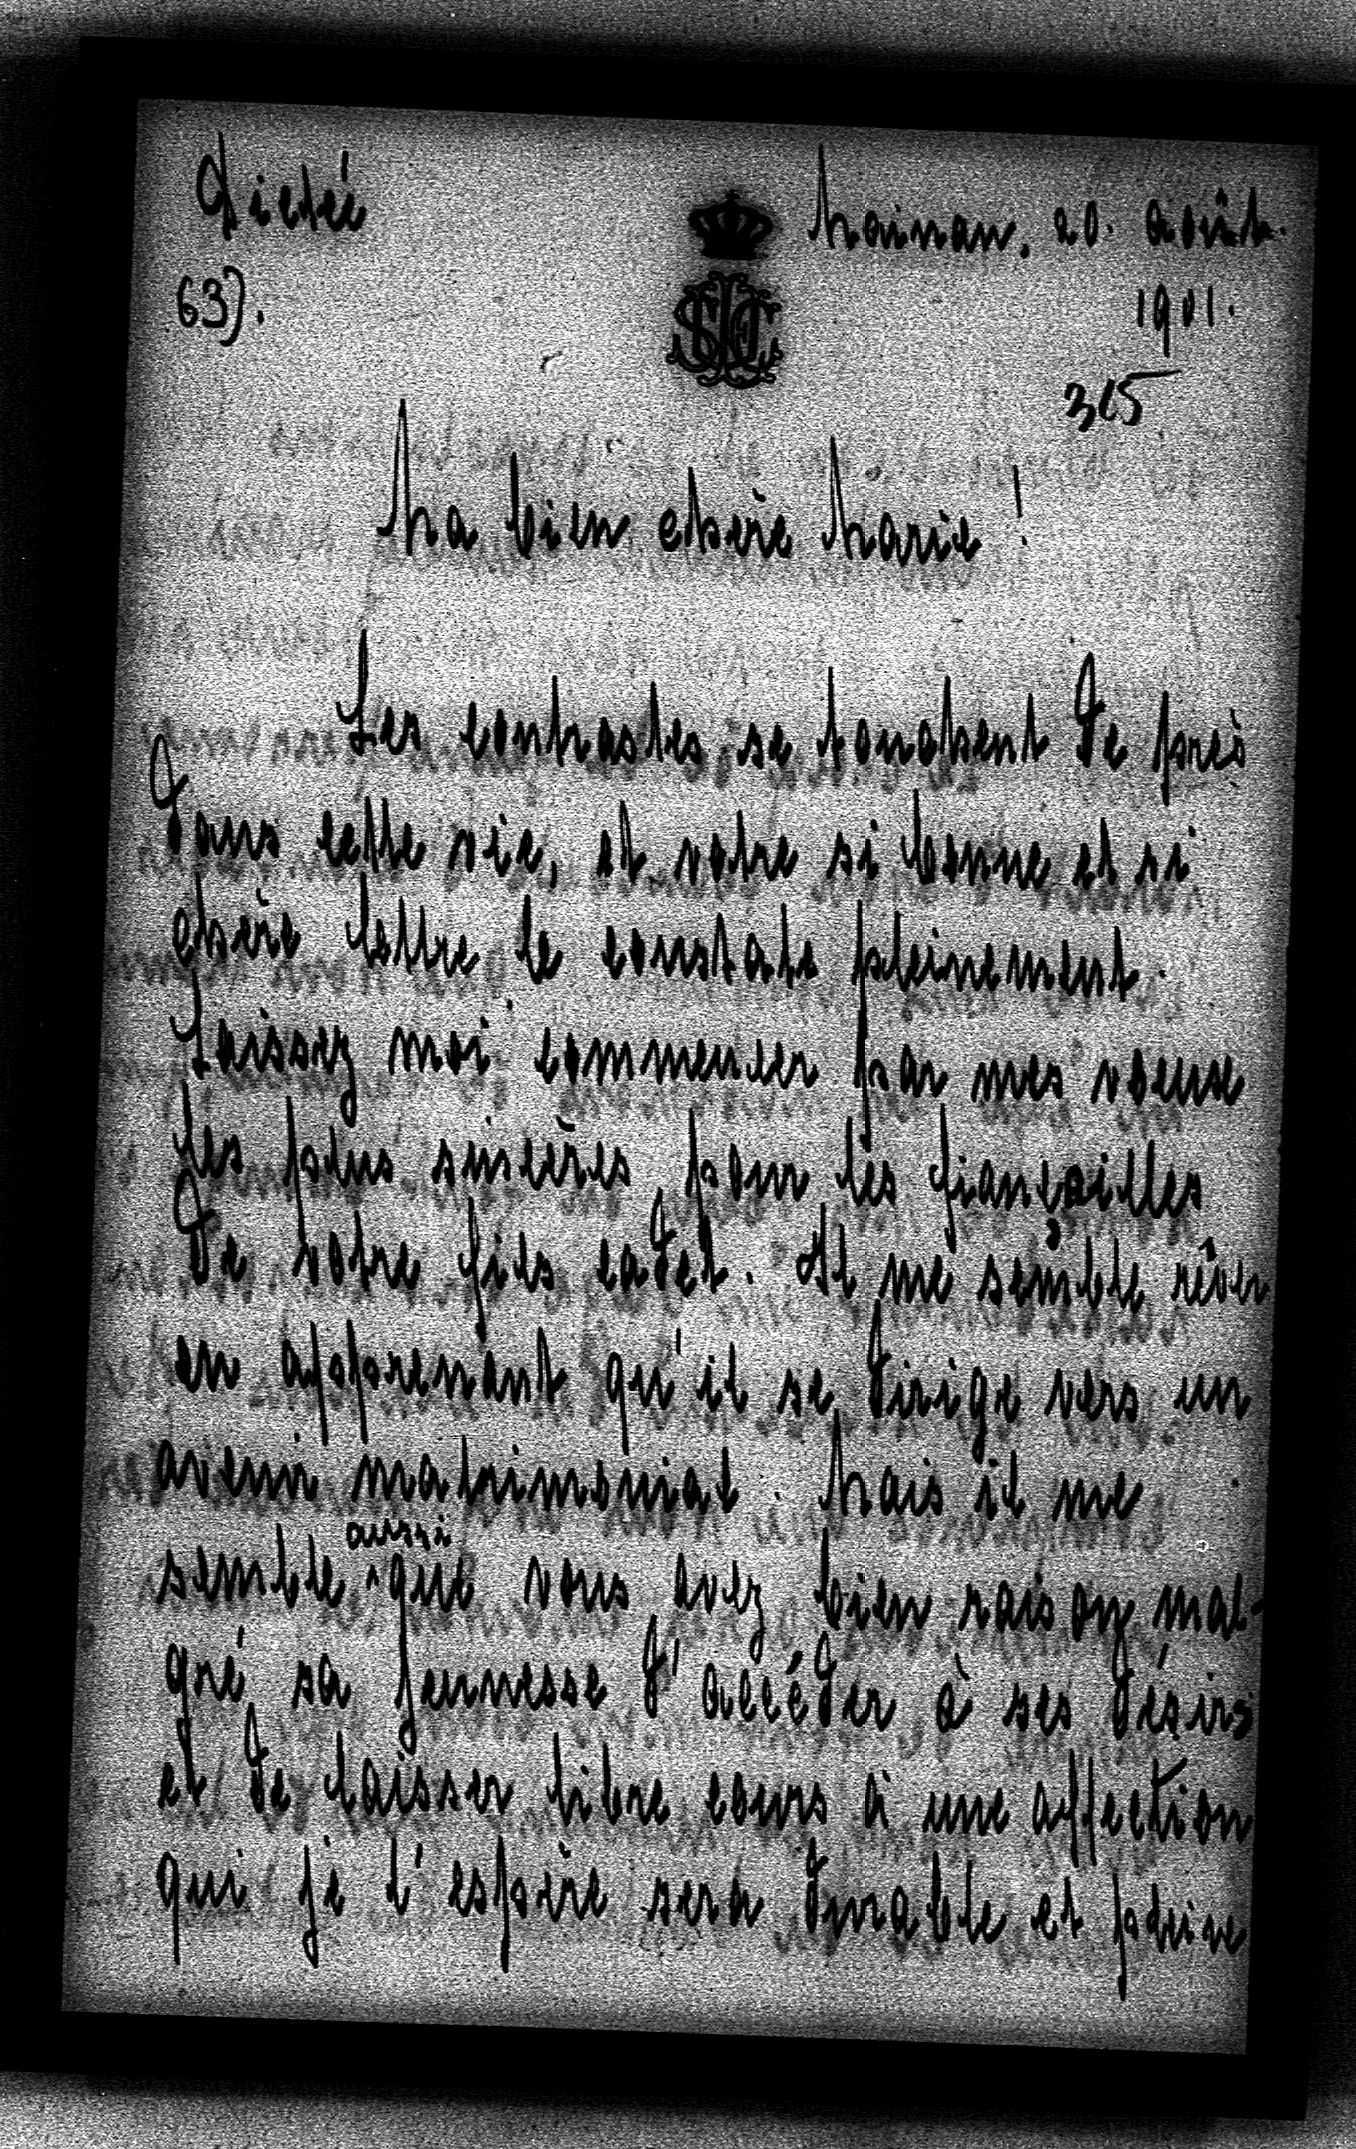 Dictée
Mainau, 20. août.
63).
1901.
365
Ma bien chère Marie!
Les contrastes se touchent de près
dans cette vie, et votre si bonne et si
chère lettre le constate pleinement.
Laissez moi commencer par mes voeux
les plus sincères pour les fiançailles
de votre fils cadet. Il me semble rêver
en apprenant qu'il se dirige vers un
avenir matrimonial. Mais il me
semble aussi que vous avez bien raison mal-
gré sa jeunesse d'accéder à ses désirs
et de laisser libre cours à une affection
qui je l'espère sera durable et pleine